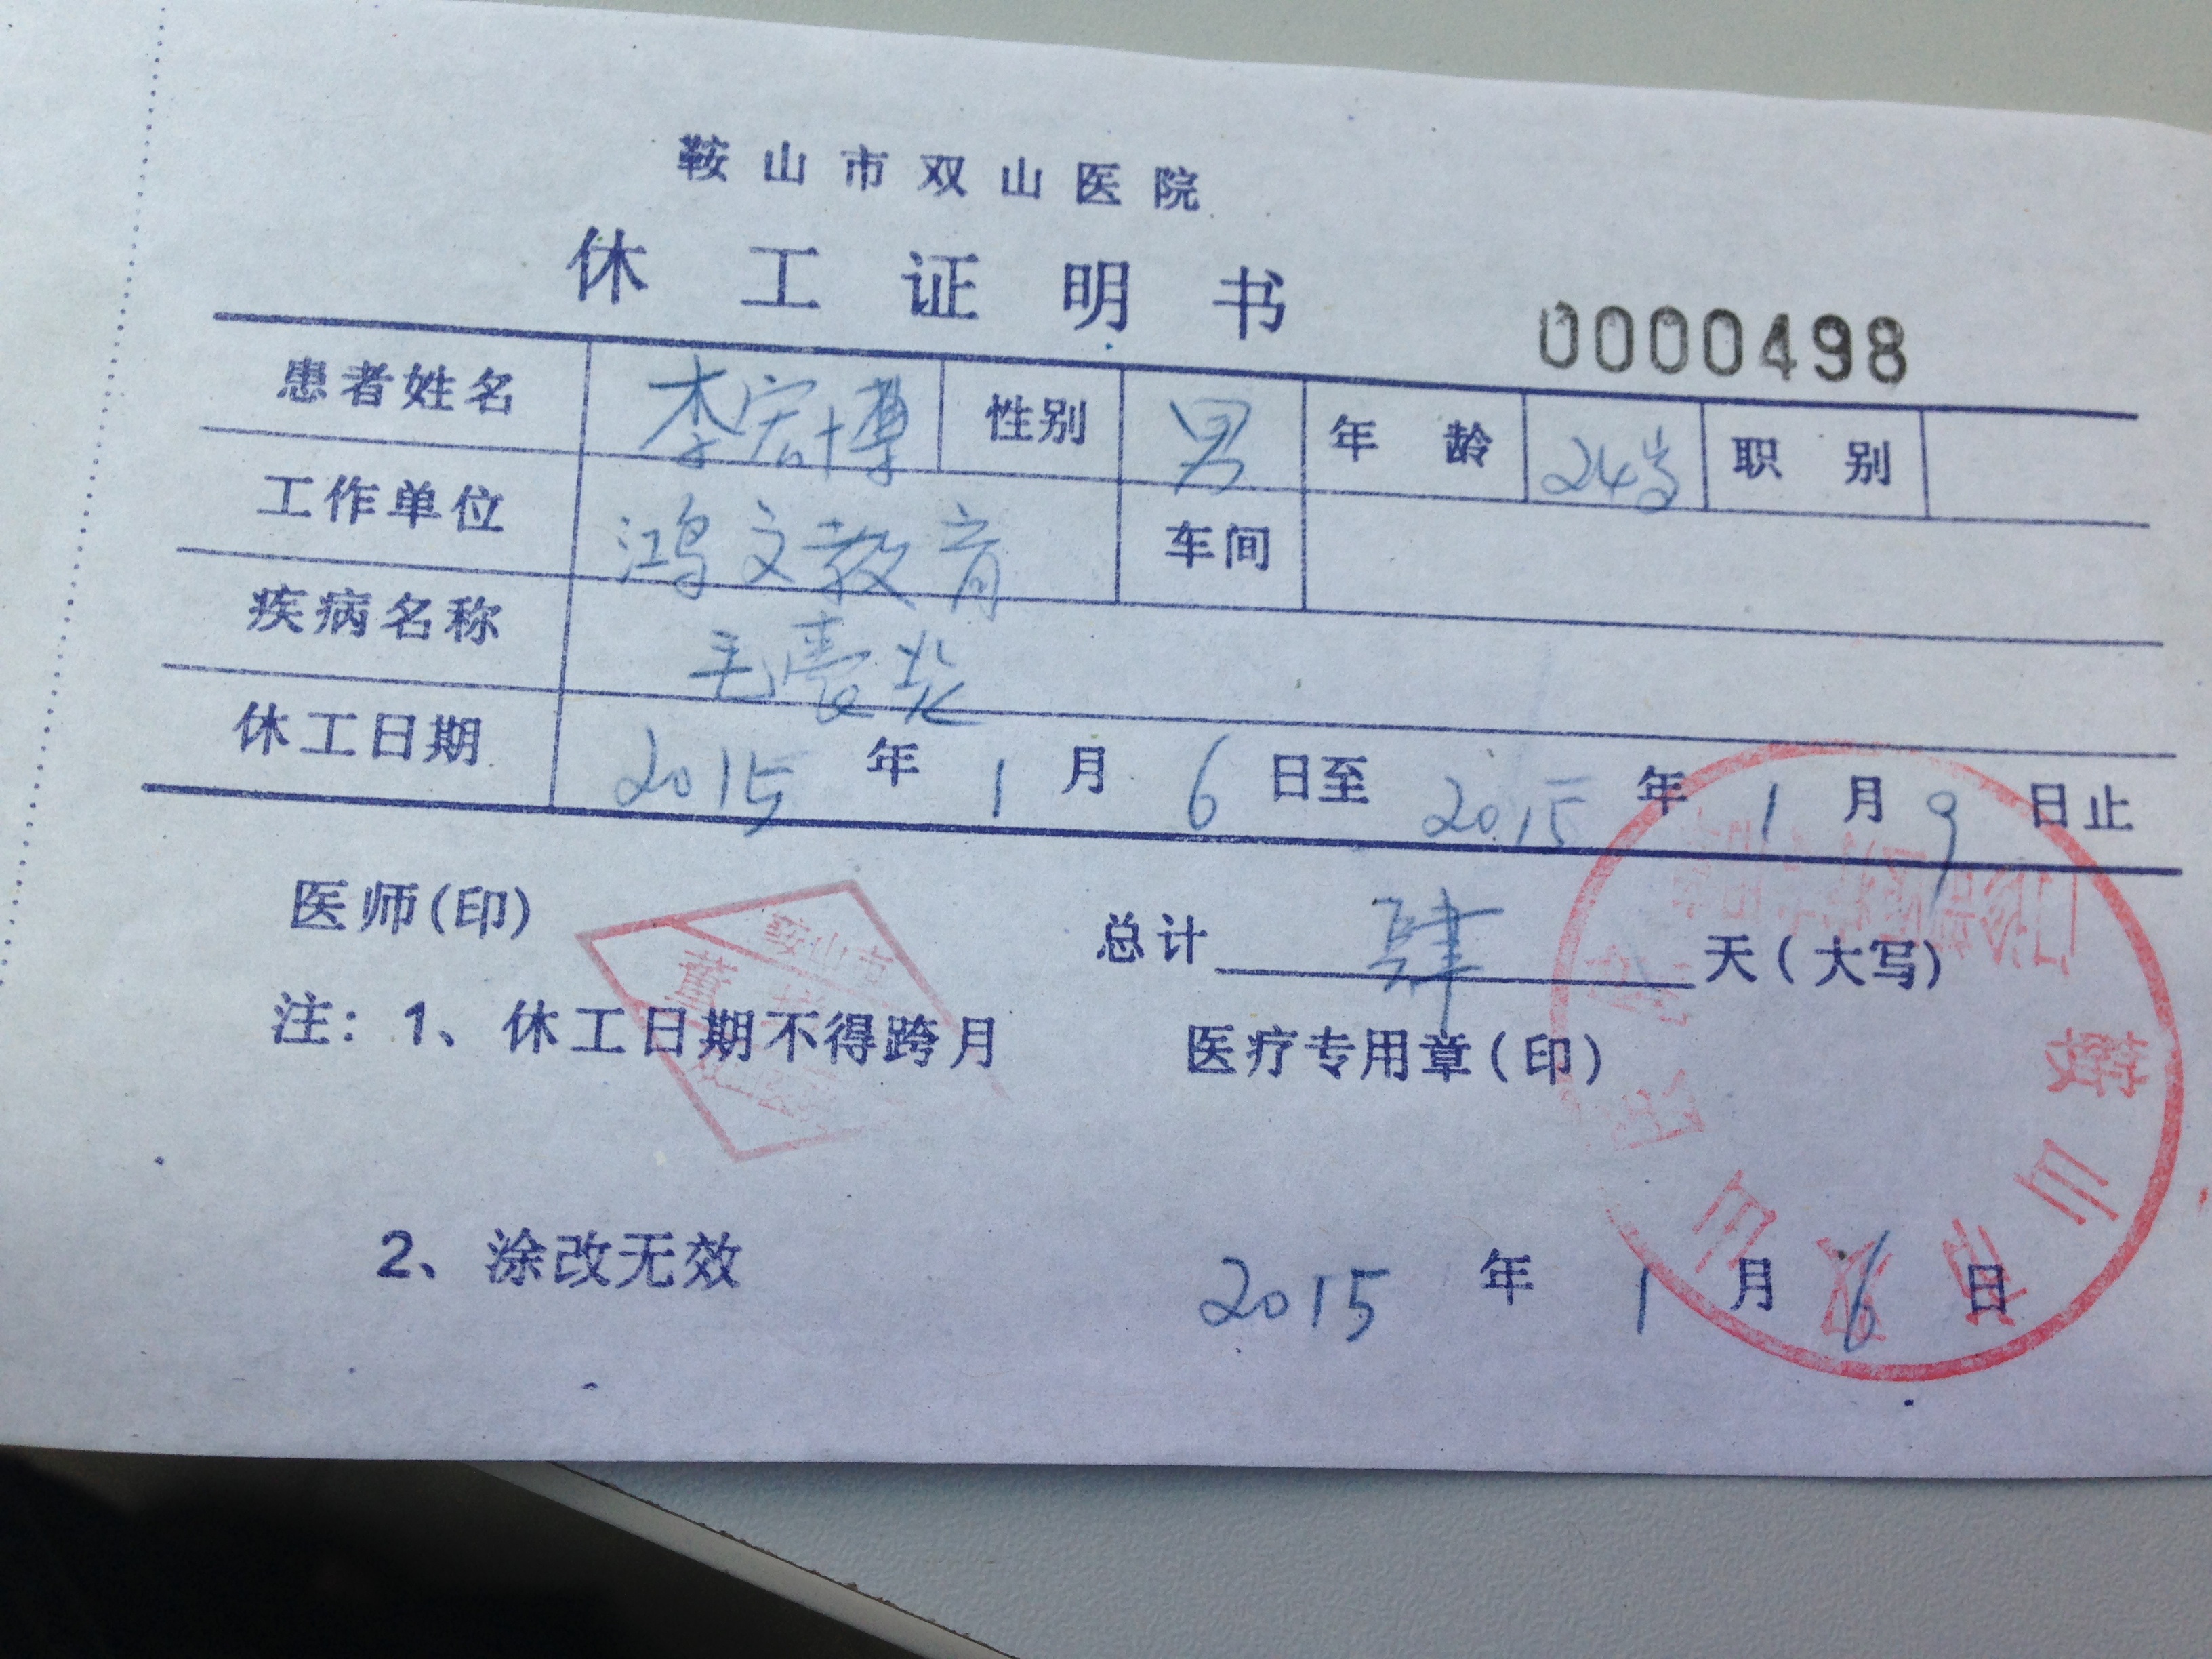 鞍山市双山医院
休工证明书
0000498
患者姓名 李宏博 性别 男 年龄 24岁 职别
工作单位 鸿文教育 车间
疾病名称 毛囊炎
休工日期 2015年1月6日至2015年1月9日止
医师(印) 总计 肆 天(大写)
注:1、休工日期不得跨月 医疗专用章(印)
2、涂改无效 2015年1月6日